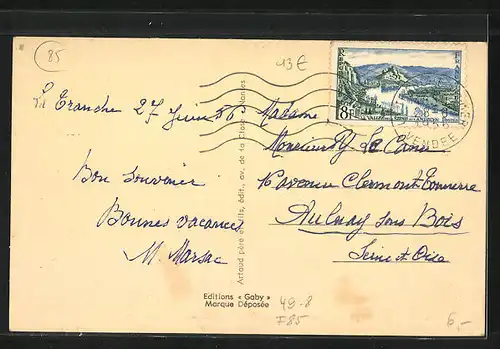 85
43€
La Tranche 27 Juin 56
Bon souvenir
Bonnes vacances
M. Marsac
Artaud père et fils, édit., av. de la Close, Nantes
Editions « Gaby »
Marque Déposée
8F
VENDEE
Madame
Monsieur Y Le Cann
16 avenue Clermont Tonnerre
Aulnay sous Bois
Seine et Oise
49-8
F85
6,-